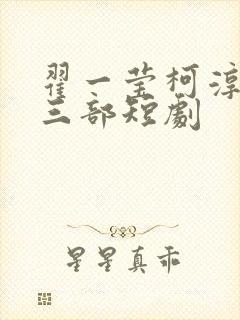 翟一莹柯淳
三部短劇
星星真乖